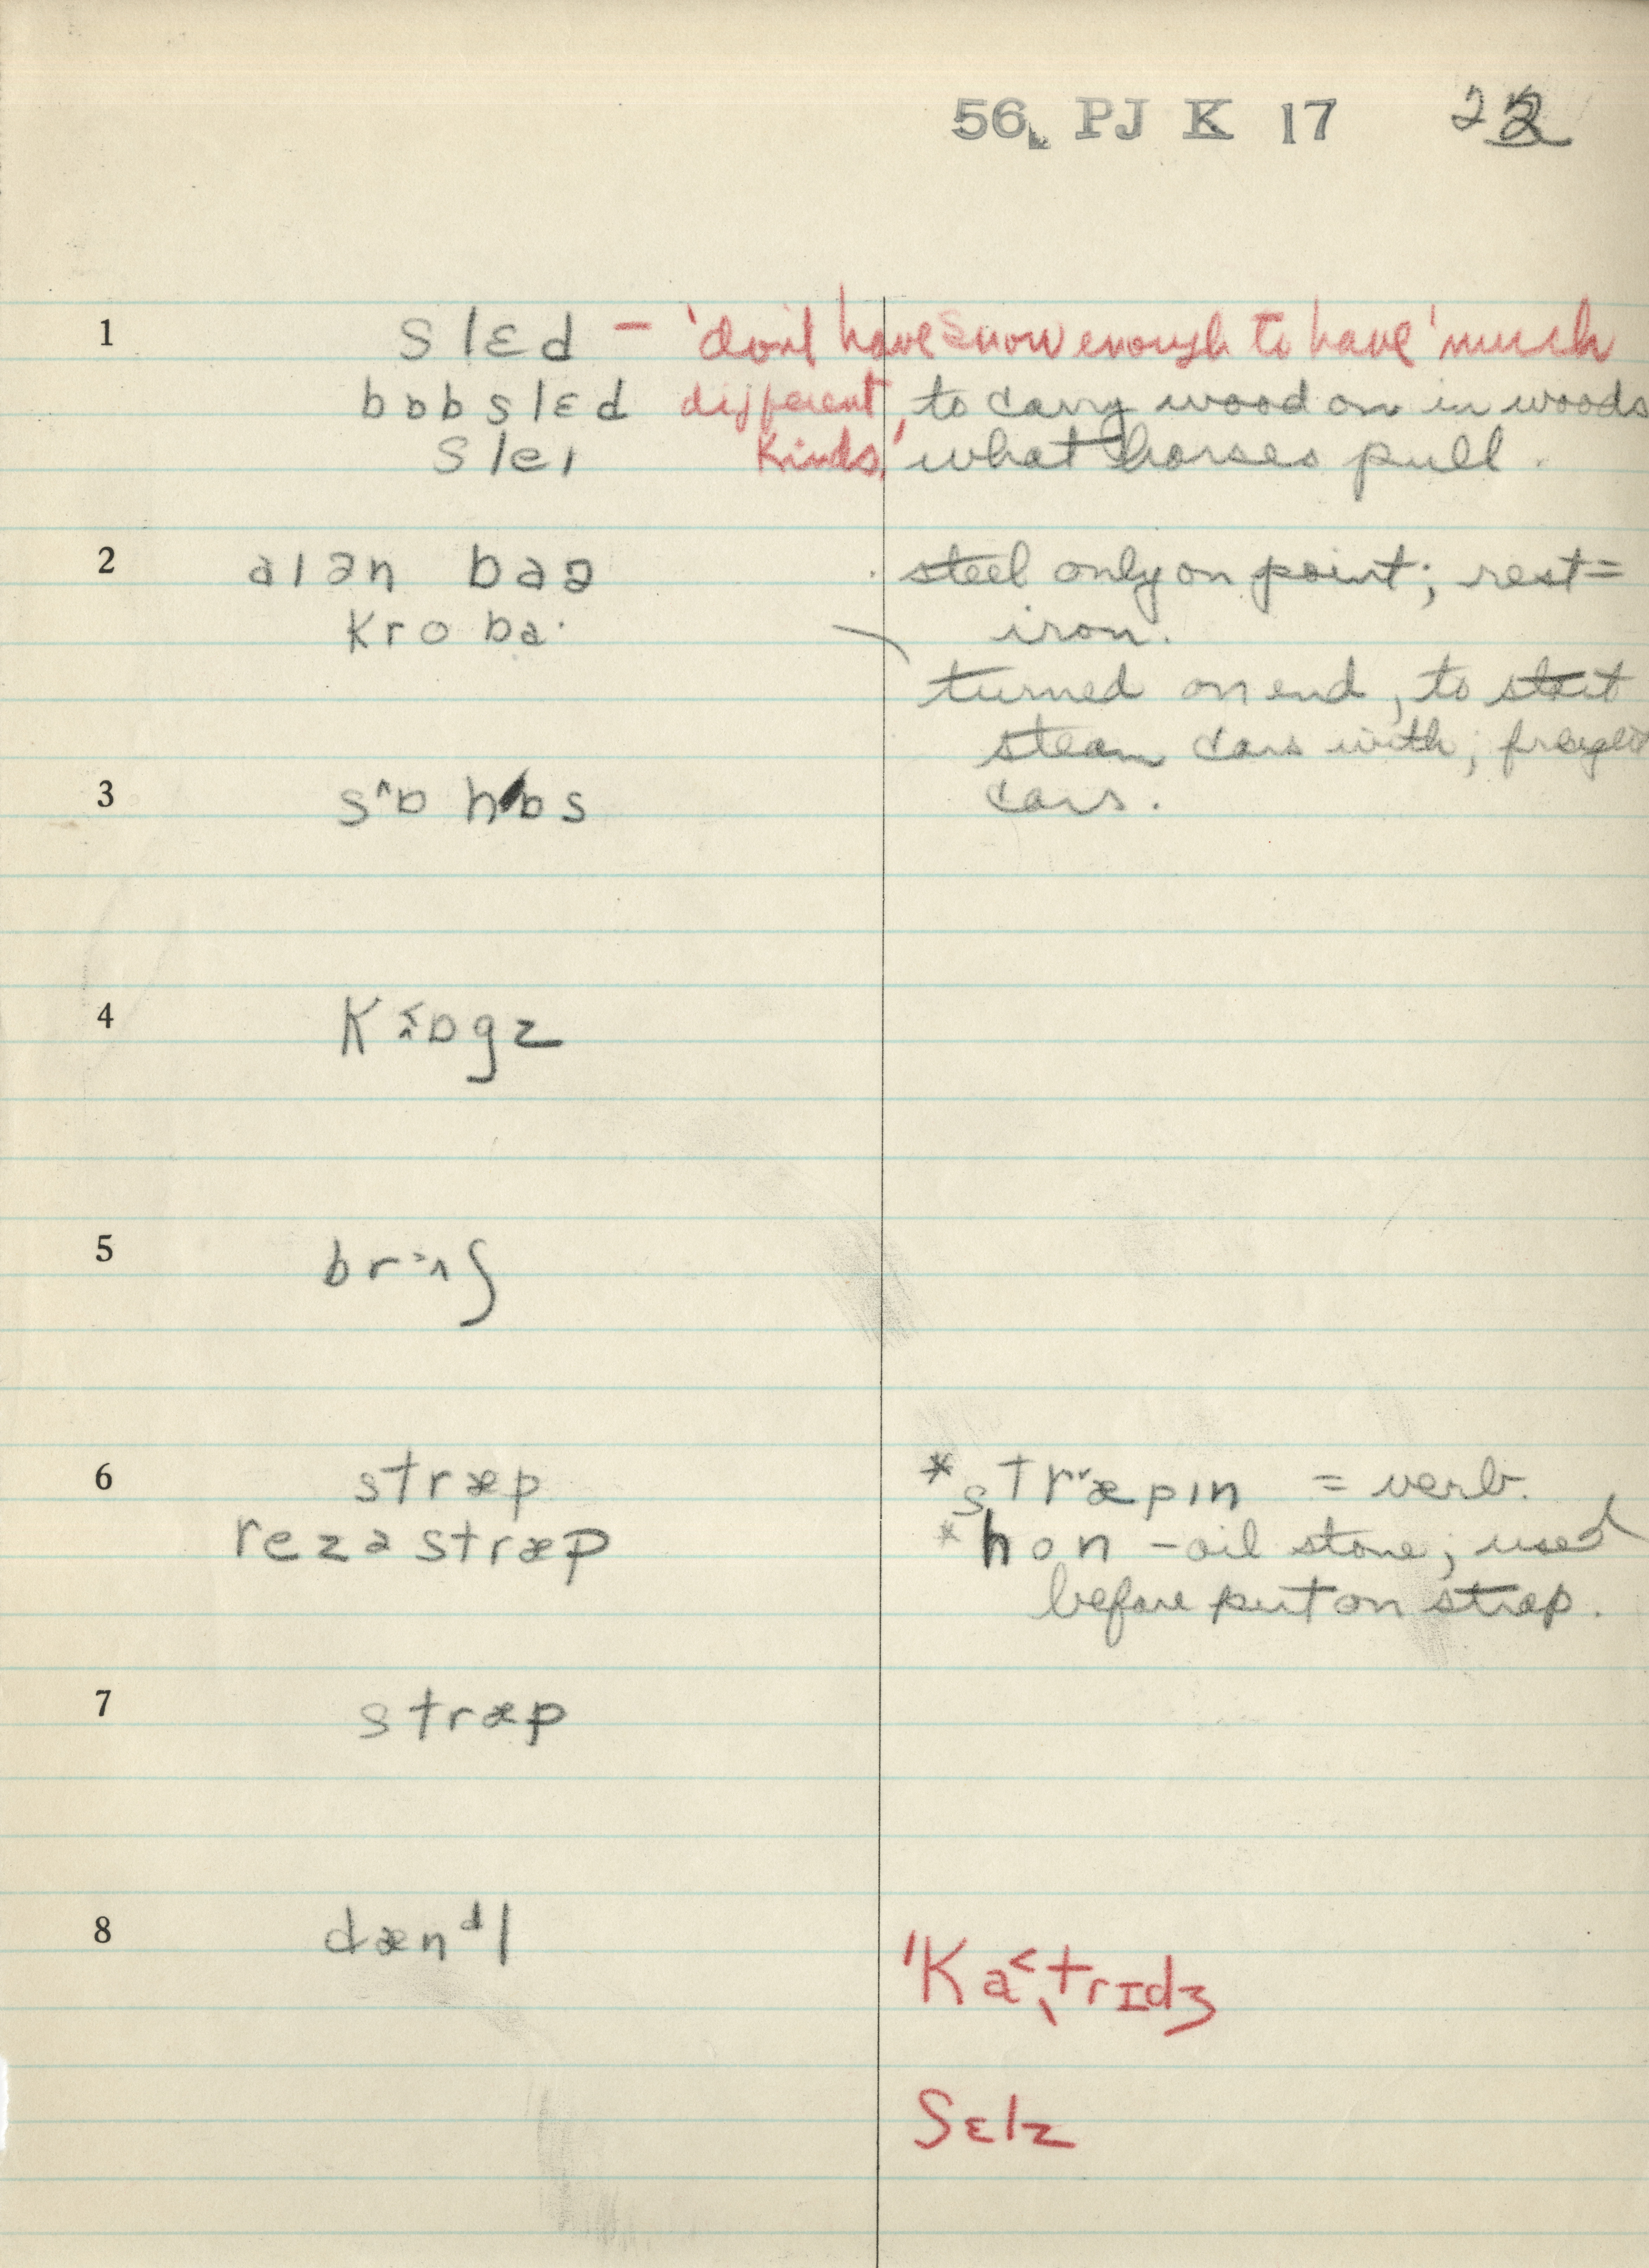 56. PJ K 17 22
1 slɛd – 'don't have snow enough to have 'much
bɒbslɛd different to carry wood on in woods
sleɪ kinds,' what horses pull.
2 aɪən baə steel only on point; rest =
kro ba· iron.
turned on end, to start
steam cars with; freight
3 s^ɒ hɒs cars.
4 kɒgz
5 brʌʃ
6 stræp *stræpɪn = verb.
rezə stræp *hon – oil stone; used
before put on strap.
7 stræp
8 dænᵈl 'ka˂,trɪdʒ
ʃɛlz